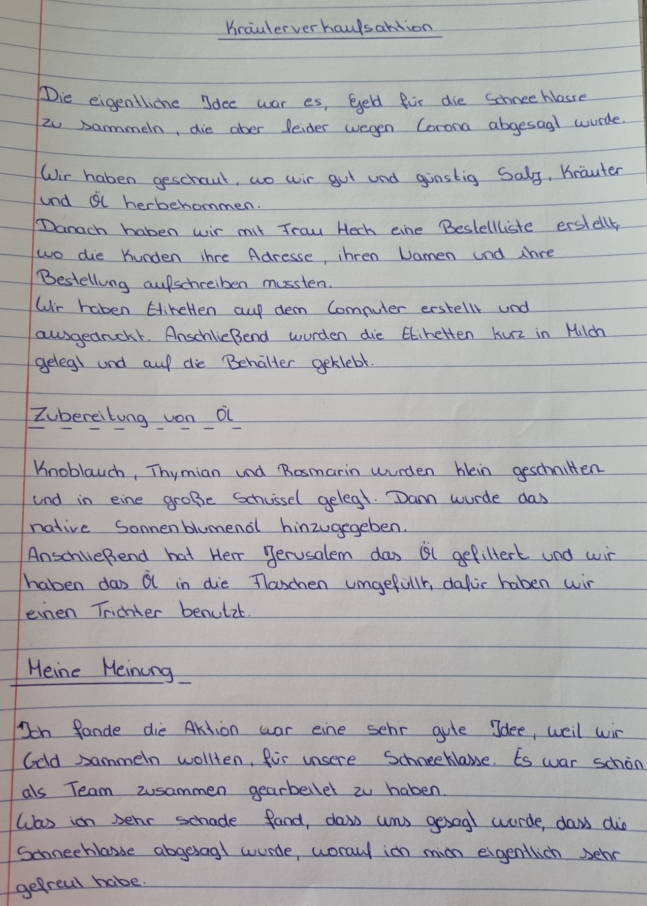 Kräuterverkaufsaktion
Die eigentliche Idee war es, Geld für die Schneeklasse
zu sammeln, die aber leider wegen Corona abgesagt wurde.
Wir haben geschaut, wo wir gut und günstig Salz, Kräuter
und Öl herbekommen.
Danach haben wir mit Frau Hech eine Bestellliste erstellt,
wo die Kunden ihre Adresse, ihren Namen und ihre
Bestellung aufschreiben mussten.
Wir haben Etiketten auf dem Computer erstellt und
ausgedruckt. Anschließend wurden die Etiketten kurz in Milch
gelegt und auf die Behälter geklebt.
Zubereitung von Öl
Knoblauch, Thymian und Rosmarin wurden klein geschnitten
und in eine große Schüssel gelegt. Dann wurde das
native Sonnenblumenöl hinzugegeben.
Anschließend hat Herr Jerusalem das Öl gefiltert und wir
haben das Öl in die Flaschen umgefüllt, dafür haben wir
einen Trichter benutzt.
Meine Meinung
Ich fande die Aktion war eine sehr gute Idee, weil wir
Geld sammeln wollten, für unsere Schneeklasse. Es war schön
als Team zusammen gearbeitet zu haben.
Was ich sehr schade fand, dass uns gesagt wurde, dass die
Schneeklasse abgesagt wurde, worauf ich mich eigentlich sehr
gefreut habe.